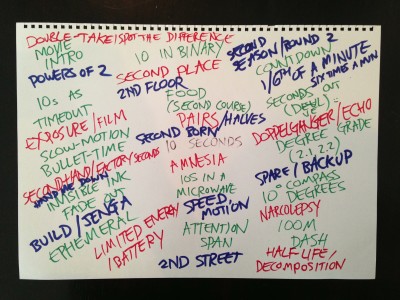 DOUBLE-TAKE/SPOT THE DIFFERENCE
MOVIE
INTRO
POWERS OF 2
10s AS
TIMEOUT
EXPOSURE/FILM
SLOW-MOTION
BULLET-TIME
SECONDHAND/FACTORY/SECONDS
HAND ME DOWN
INVISIBLE INK
FADE OUT
BUILD/JENGA
EPHEMERAL
10 IN BINARY
SECOND PLACE
2ND FLOOR
FOOD
(SECOND COURSE)
PAIRS/HALVES
SECOND BORN
10 SECONDS
AMNESIA
10s IN A
MICROWAVE
SPEED
MOTION
LIMITED ENERGY
/BATTERY
ATTENTION
SPAN
2ND STREET
SECOND
SEASON/ROUND 2
COUNTDOWN
1/6TH OF A MINUTE
SIX TIMES A MIN
SECONDS OUT
(DUEL)
DOPPELGANGER/ECHO
DEGREE GRADE
(2.1, 2.2)
SPARE/BACKUP
10° COMPASS
10 DEGREES
NARCOLEPSY
100M
DASH
HALF LIFE/
DECOMPOSITION